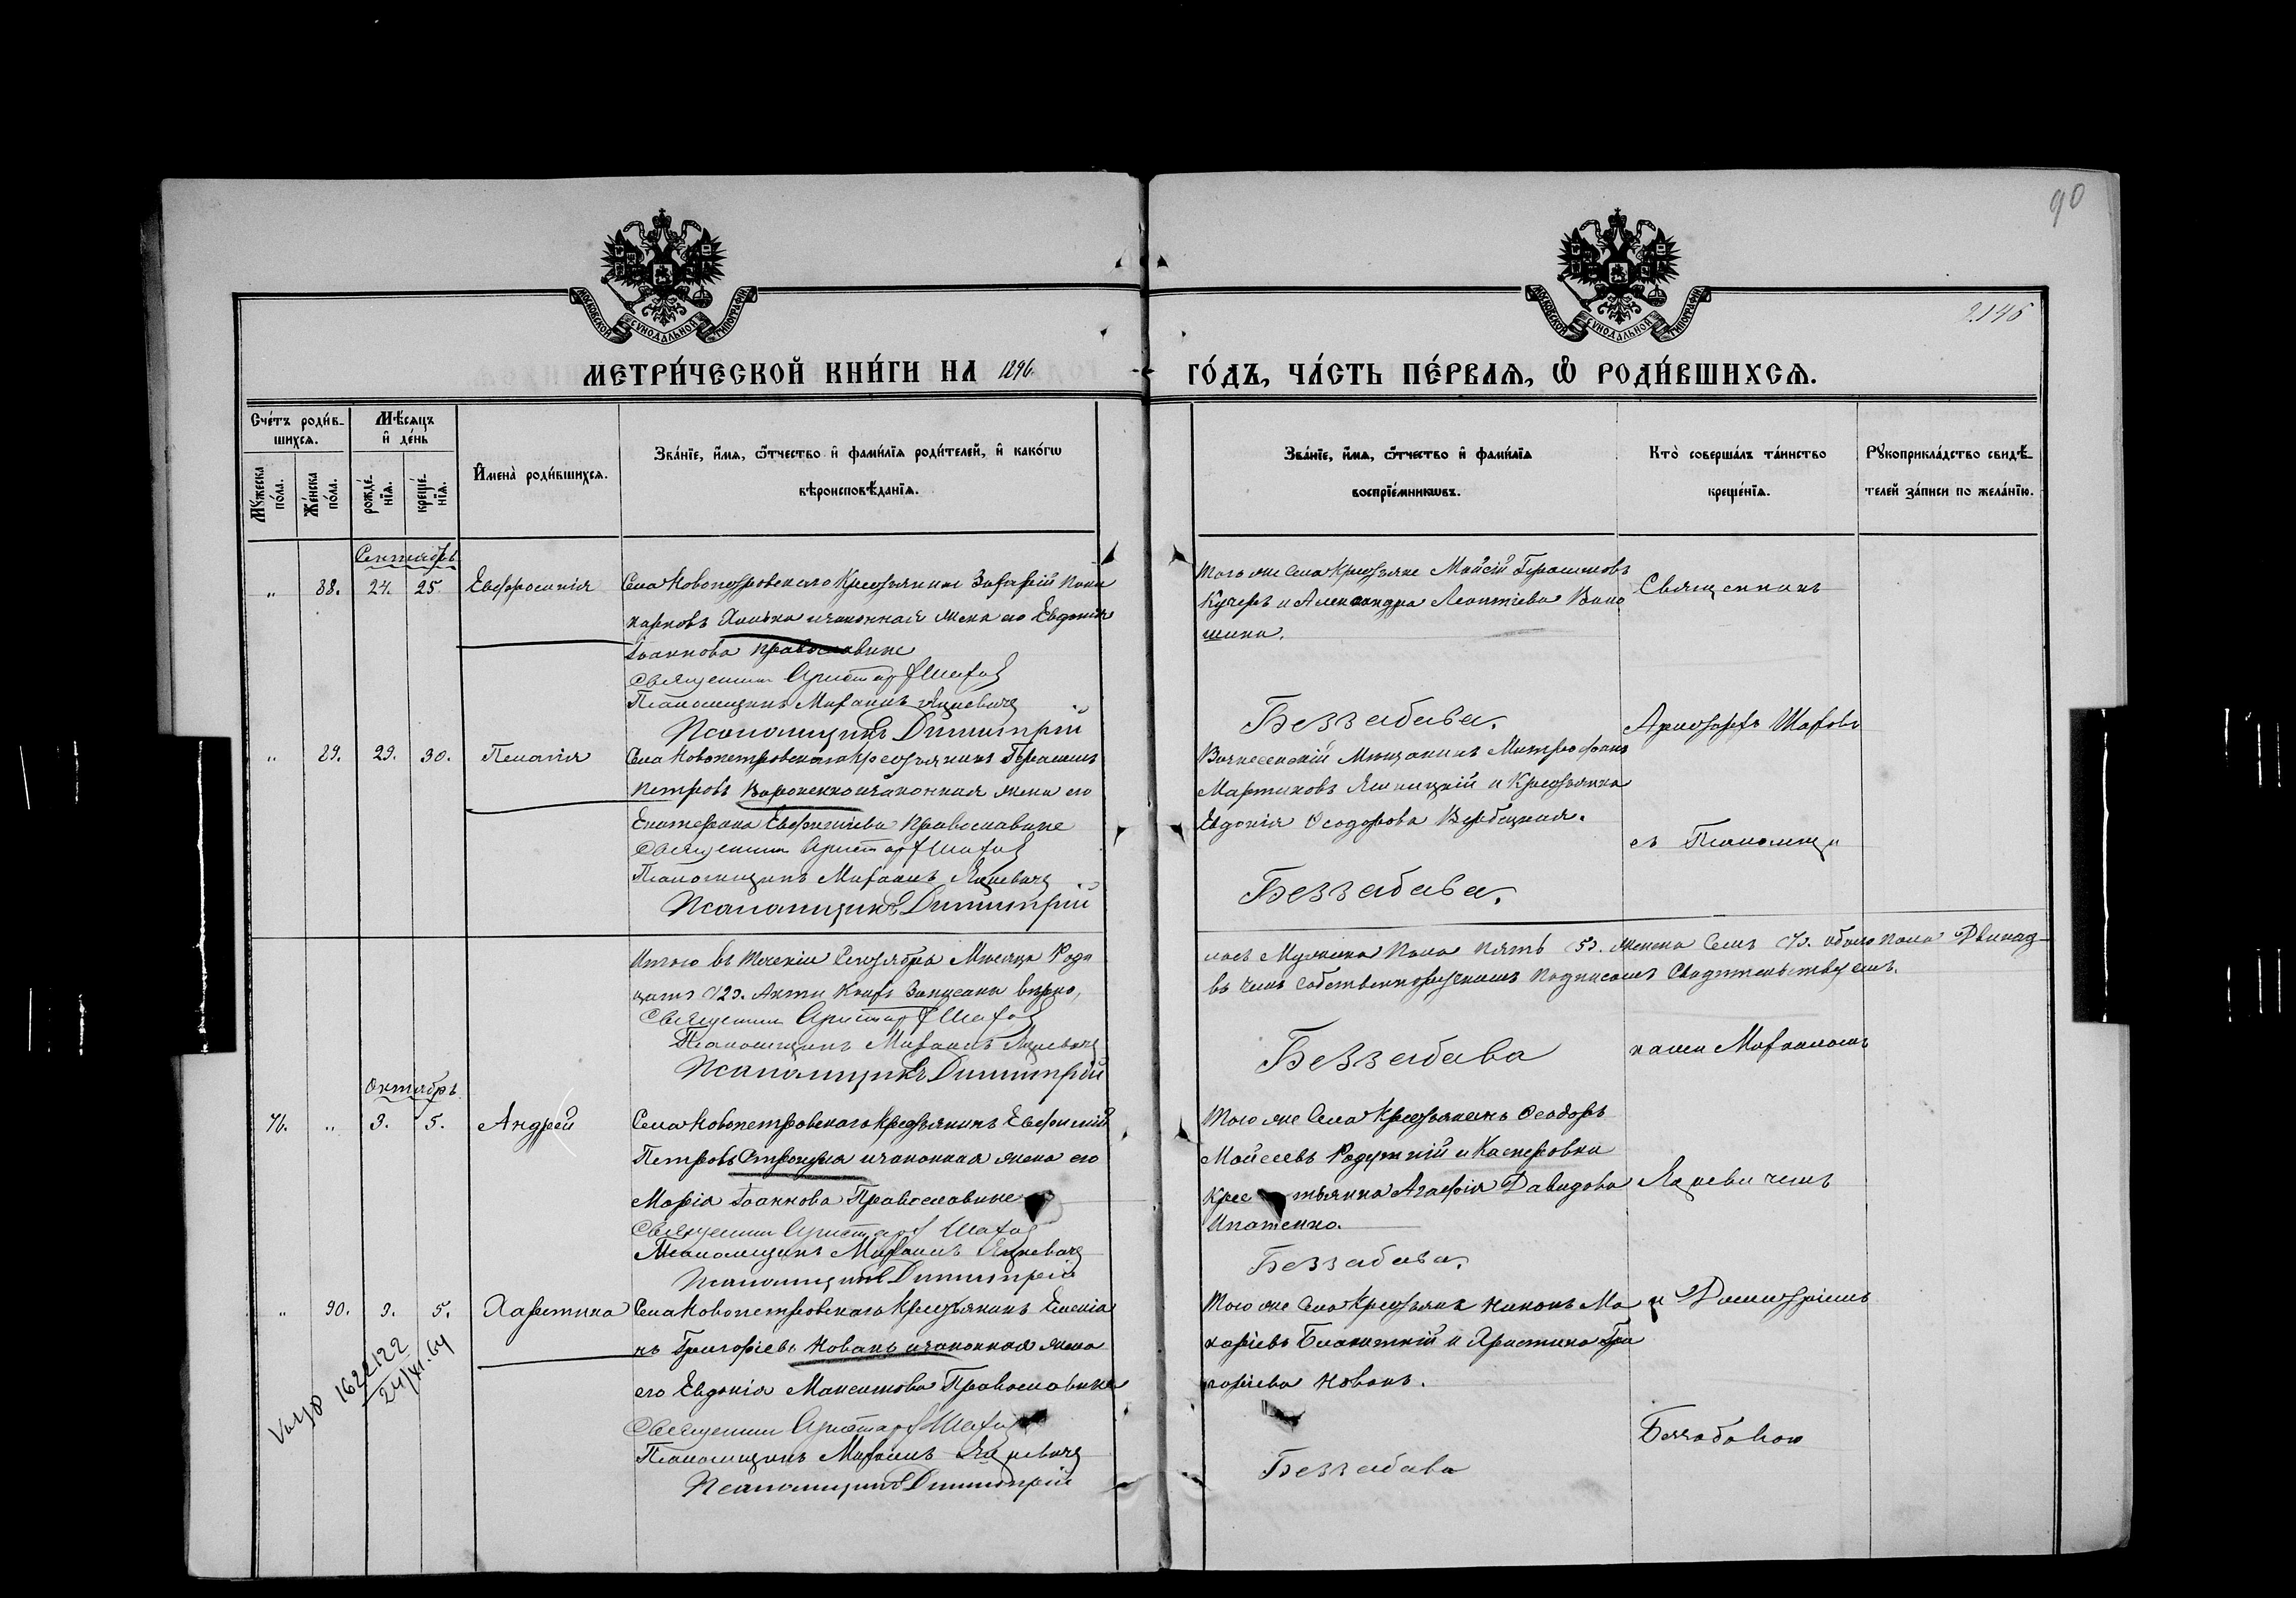 90
2.145
МОСКОВСКОЙ СѴНОДАЛЬНОЙ ТИПОГРАФІИ
МОСКОВСКОЙ СѴНОДАЛЬНОЙ ТИПОГРАФІИ
МЕТРИ́ЧЕСКОЙ КНИ́ГИ НА 1896.
ГО́ДЪ, ЧА́СТЬ ПЕ́РВАЯ, Ѽ РОДИ́ВШИХСЯ.
Сче́тъ роди́в-
шихся.
Мѣ́сяцъ
и҆ де́нь
Му́жеска по́ла.
Же́нска по́ла.
рожде́-нїя.
креще́-нїя.
И҆мена̀ роди́вшихся.
Зва́нїе, и҆́мя, ѻ҆́тчество и҆ фами́лїя роди́телей, и҆ како́гѡ
вѣроисповѣ́данїя.
Зва́нїе, и҆́мя, ѻ҆́тчество и҆ фами́лїя
воспрїе́мникѡвъ.
Кто̀ соверша́лъ та́инство
креще́нїя.
Рꙋкоприкла́дство свидѣ́-
телей за́писи по жела́нїю.
Сентябрь
„ 88. 24. 25. Евфросинія
Села Новопетровскаго Крестьянинъ Захарій Поли
карповъ и законная жена его Евдокія
Іоаннова Православные
Священникъ Аристархъ Шаховъ
Псаломщикъ Михаилъ Яцкевичъ
Псаломщикъ Димитрій
Того же Села Крестьяне Мойсей Герасимовъ
Кучеръ и Александра Леонтіева Воло
шина.
Беззабава.
Священникъ
„ 89. 29. 30. Пелагія
Села Новопетровскаго Крестьянинъ Герасимъ
Петровъ Вороненко и законная жена его
Екатерина Евфиміева Православные
Священникъ Аристархъ Шаховъ
Псаломщикъ Михаилъ Яцкевичъ
Псаломщикъ Димитрій
Вознесенскій Мѣщанинъ Митрофанъ
Мартиновъ и Крестьянка
Евдокія Ѳеодорова Вербицкая.
Беззабава.
Аристархъ Шаховъ
съ Псаломщи
Итого въ теченіи Сентября Мѣсяца Роди
лось Мужеска Пола пять (5). женска Семь (7). обоего пола Двѣнад-
цать (12). Акты Книгъ Записаны вѣрно,
въ чемъ собственноручнымъ подписомъ Свидѣтельствуемъ.
Священникъ Аристархъ Шаховъ
Псаломщикъ Михаилъ Яцкевичъ
Псаломщикъ Димитрій
Беззабава
ками Михаиломъ
Октябрь
76. „ 3. 5. Андрей
Села Новопетровскаго Крестьянинъ Евфимій
Петровъ и законная жена его
Марія Іоаннова Православные
Священникъ Аристархъ Шаховъ
Псаломщикъ Михаилъ Яцкевичъ
Псаломщикъ Димитрій
Того же Села Крестьянинъ Ѳеодоръ
Мойсеевъ и Касперовки
Крестьянка Агафія Давидова
Ипатенко.
Беззабава.
Яцкевичемъ
„ 90. 3. 5. Харитина
Села Новопетровскаго Крестьянинъ Емелія
нъ Григоріевъ Новакъ и законная жена
его Евдокія Максимова Православные
Священникъ Аристархъ Шаховъ
Псаломщикъ Михаилъ Яцкевичъ
Псаломщикъ Димитрій
Того же Села Крестьяне Никонъ Ма
каріевъ и Христина Гри
горіева Новакъ.
Беззабава
и Димитріемъ
Беззабавою
1622122
24/XI.64